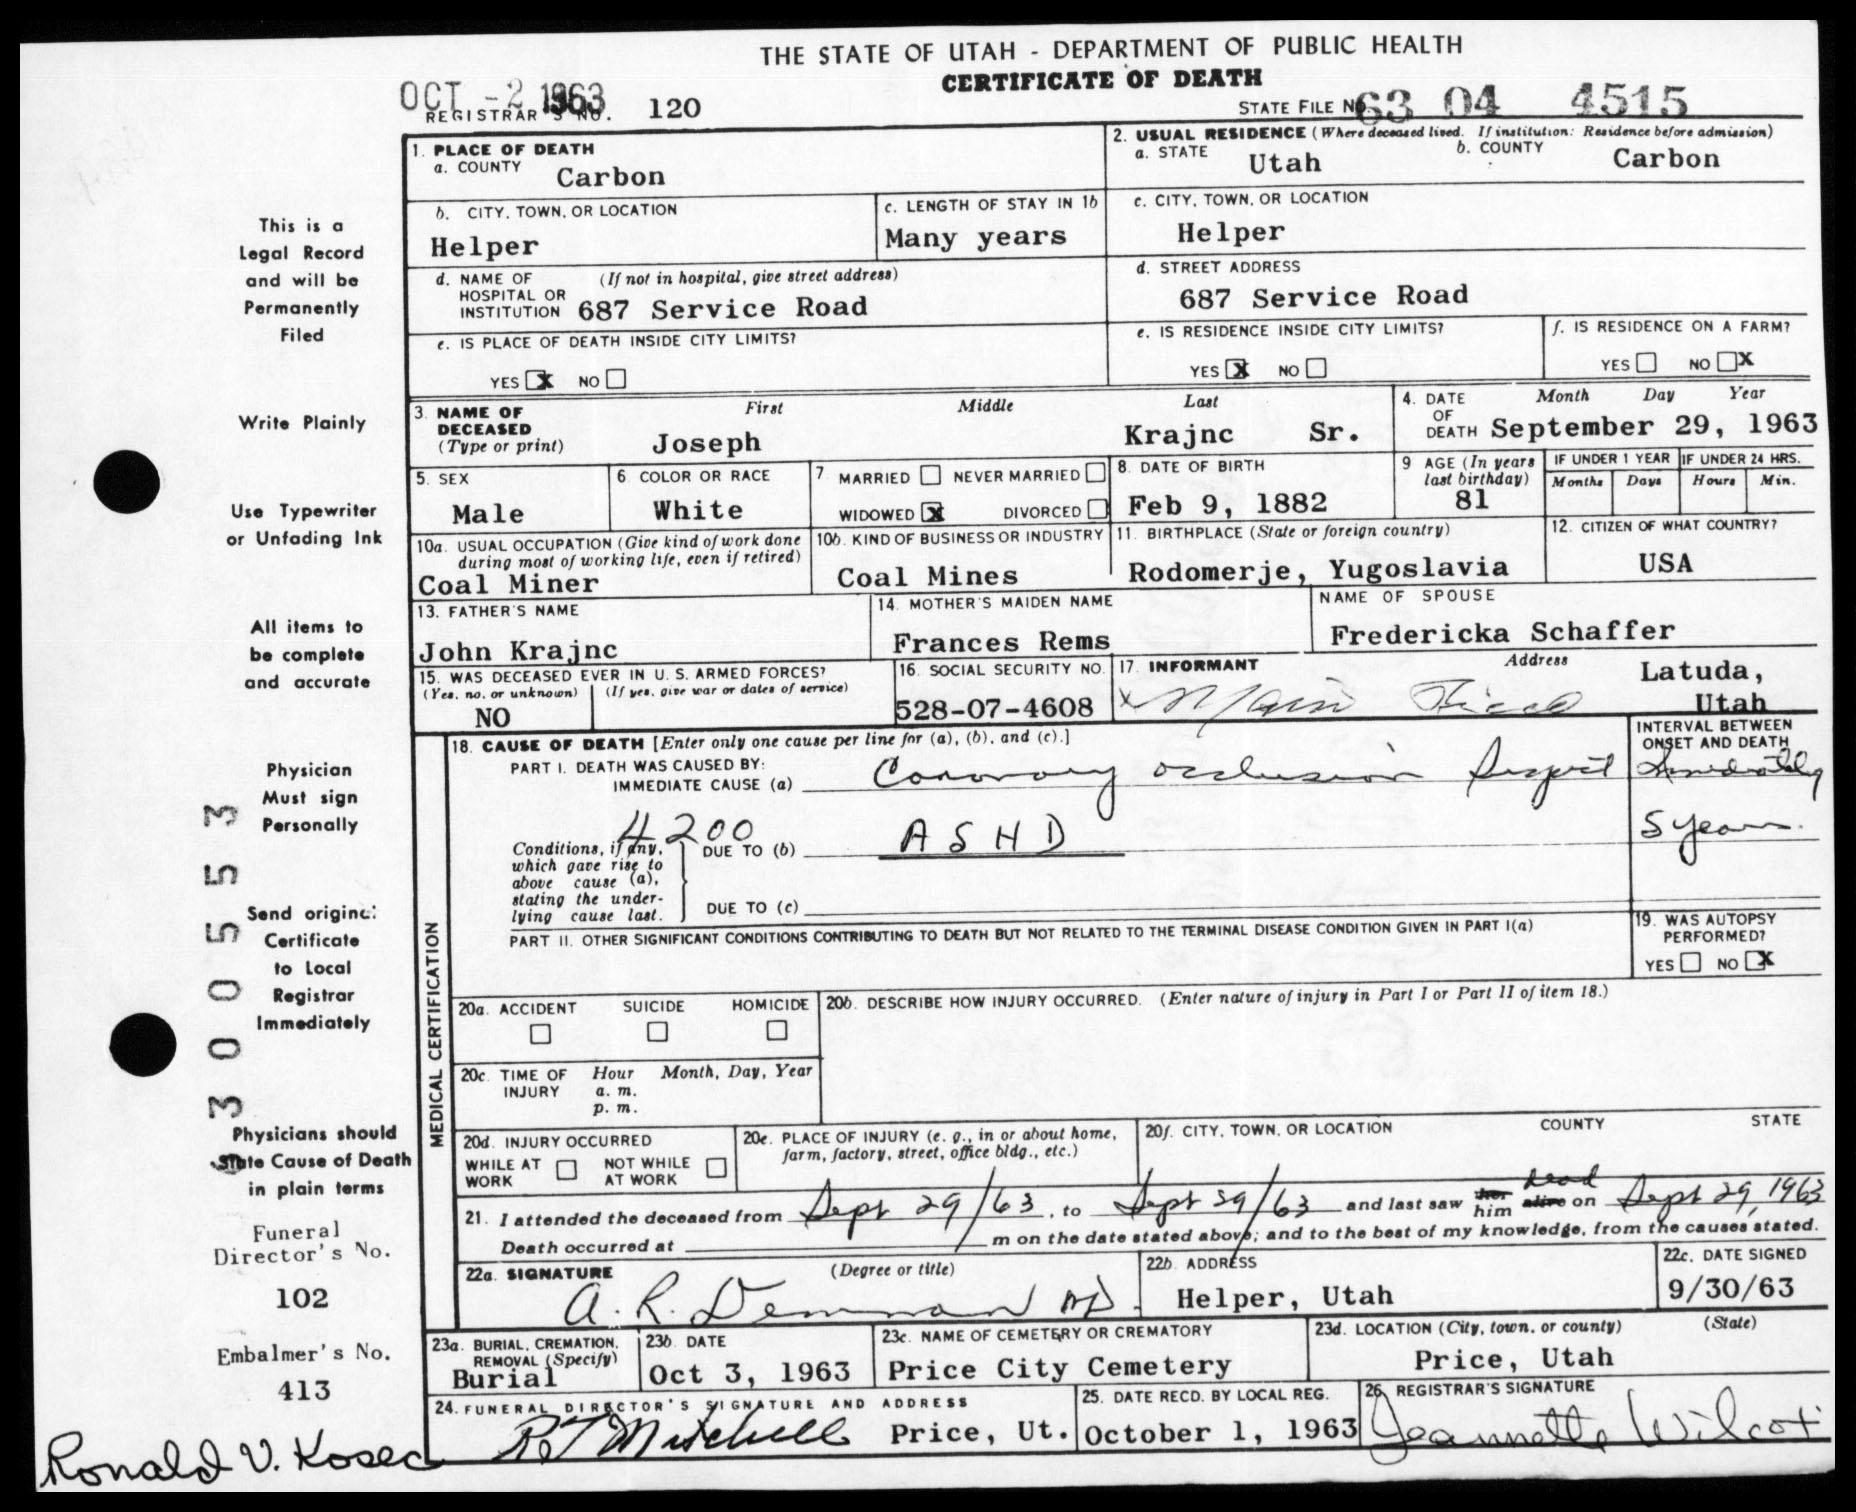 THE STATE OF UTAH - DEPARTMENT OF PUBLIC HEALTH
CERTIFICATE OF DEATH
OCT -2 1963
REGISTRAR'S NO. 120
STATE FILE NO. 63 04 4515
1. PLACE OF DEATH
a. COUNTY Carbon
2. USUAL RESIDENCE (Where deceased lived. If institution: Residence before admission)
a. STATE Utah b. COUNTY Carbon
b. CITY, TOWN, OR LOCATION Helper
c. LENGTH OF STAY IN 1b Many years
c. CITY, TOWN, OR LOCATION Helper
d. NAME OF HOSPITAL OR INSTITUTION (If not in hospital, give street address) 687 Service Road
d. STREET ADDRESS 687 Service Road
e. IS PLACE OF DEATH INSIDE CITY LIMITS?
YES X NO
e. IS RESIDENCE INSIDE CITY LIMITS?
YES X NO
f. IS RESIDENCE ON A FARM?
YES NO X
3. NAME OF DECEASED (Type or print) First Middle Last
Joseph Krajnc Sr.
4. DATE OF DEATH Month Day Year
September 29, 1963
5. SEX Male
6. COLOR OR RACE White
7. MARRIED NEVER MARRIED
WIDOWED X DIVORCED
8. DATE OF BIRTH Feb 9, 1882
9 AGE (In years last birthday) 81
IF UNDER 1 YEAR Months Days
IF UNDER 24 HRS. Hours Min.
10a. USUAL OCCUPATION (Give kind of work done during most of working life, even if retired) Coal Miner
10b. KIND OF BUSINESS OR INDUSTRY Coal Mines
11. BIRTHPLACE (State or foreign country) Rodomerje, Yugoslavia
12. CITIZEN OF WHAT COUNTRY? USA
13. FATHER'S NAME John Krajnc
14. MOTHER'S MAIDEN NAME Frances Rems
NAME OF SPOUSE Fredericka Schaffer
15. WAS DECEASED EVER IN U. S. ARMED FORCES?
(Yes, no, or unknown) (If yes, give war or dates of service)
NO
16. SOCIAL SECURITY NO. 528-07-4608
17. INFORMANT Address
x Latuda, Utah
MEDICAL CERTIFICATION
18. CAUSE OF DEATH [Enter only one cause per line for (a), (b), and (c).]
INTERVAL BETWEEN ONSET AND DEATH
PART I. DEATH WAS CAUSED BY:
IMMEDIATE CAUSE (a) Coronary occlusion Immediately
4200
Conditions, if any, which gave rise to above cause (a), stating the underlying cause last.
DUE TO (b) ASHD 5 years.
DUE TO (c)
PART II. OTHER SIGNIFICANT CONDITIONS CONTRIBUTING TO DEATH BUT NOT RELATED TO THE TERMINAL DISEASE CONDITION GIVEN IN PART I(a)
19. WAS AUTOPSY PERFORMED?
YES NO X
20a. ACCIDENT SUICIDE HOMICIDE
20b. DESCRIBE HOW INJURY OCCURRED. (Enter nature of injury in Part I or Part II of item 18.)
20c. TIME OF INJURY Hour a. m. p. m. Month, Day, Year
20d. INJURY OCCURRED
WHILE AT WORK NOT WHILE AT WORK
20e. PLACE OF INJURY (e. g., in or about home, farm, factory, street, office bldg., etc.)
20f. CITY, TOWN, OR LOCATION COUNTY STATE
21. I attended the deceased from Sept 29/63, to Sept 29/63 and last saw her him alive dead on Sept 29, 1963
Death occurred at m on the date stated above; and to the best of my knowledge, from the causes stated.
22a. SIGNATURE (Degree or title)
A. R. Demman MD.
22b. ADDRESS Helper, Utah
22c. DATE SIGNED 9/30/63
23a. BURIAL, CREMATION, REMOVAL (Specify) Burial
23b. DATE Oct 3, 1963
23c. NAME OF CEMETERY OR CREMATORY Price City Cemetery
23d. LOCATION (City, town, or county) (State) Price, Utah
24. FUNERAL DIRECTOR'S SIGNATURE AND ADDRESS
R T Mitchell Price, Ut.
25. DATE RECD. BY LOCAL REG. October 1, 1963
26. REGISTRAR'S SIGNATURE Jeannette Wilcox
This is a
Legal Record
and will be
Permanently
Filed
Write Plainly
Use Typewriter
or Unfading Ink
All items to
be complete
and accurate
Physician
Must sign
Personally
Send original
Certificate
to Local
Registrar
Immediately
Physicians should
State Cause of Death
in plain terms
300553
Funeral
Director's No.
102
Embalmer's No.
413
Ronald V. Kosec